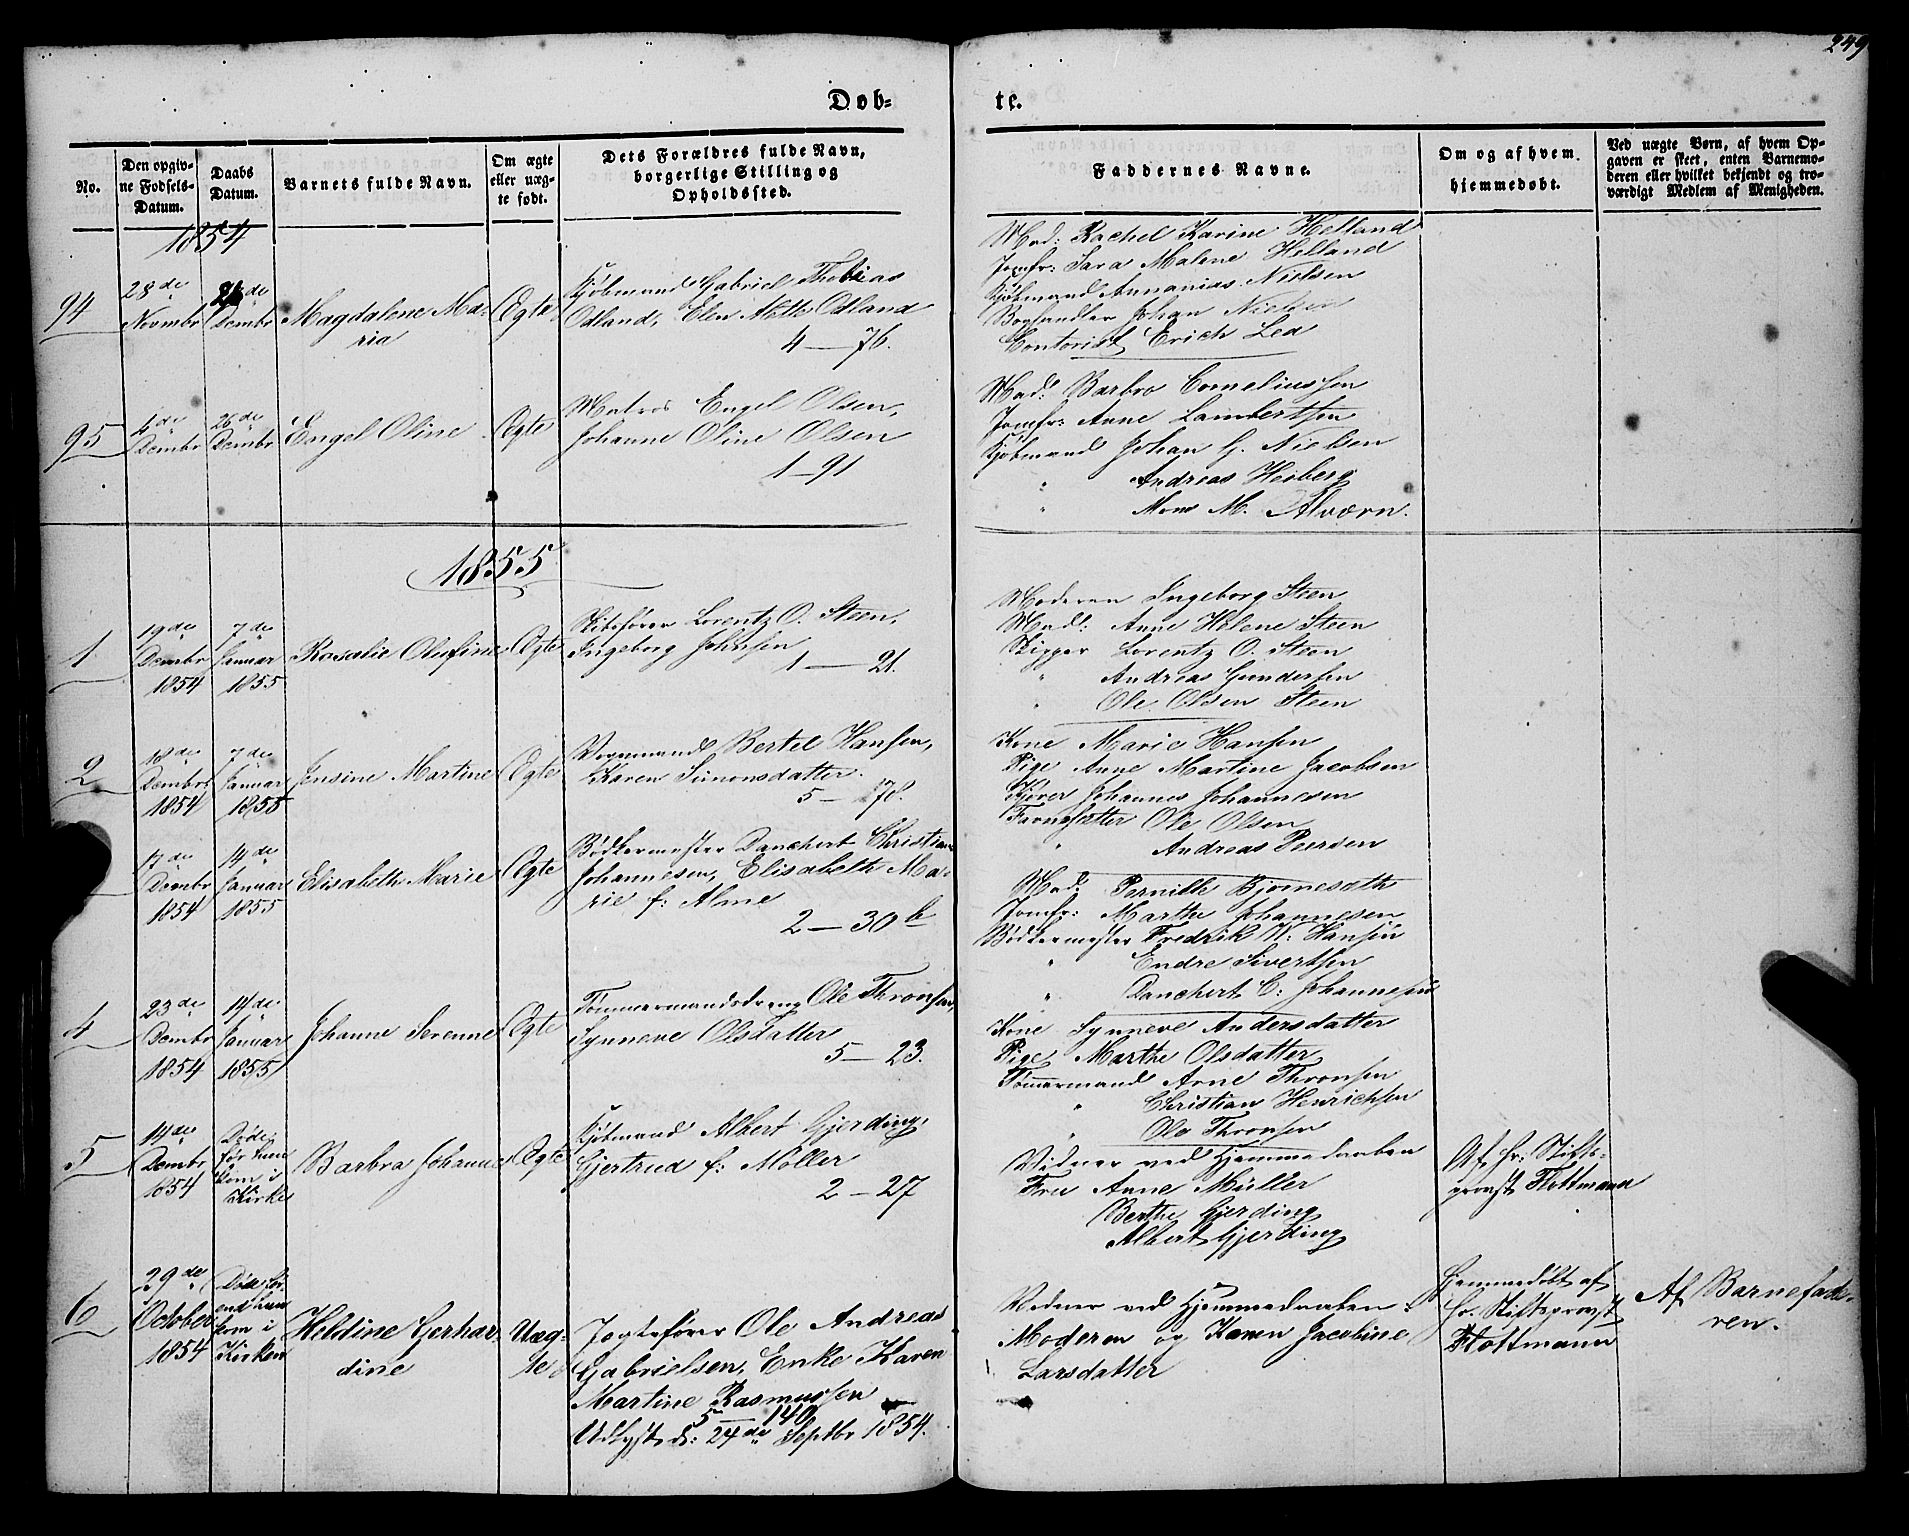 249
Døb-
te.
No.
Den opgiv-
ne Fødsels-
Datum.
Daabs
Datum.
Barnets fulde Navn.
Om ægte
eller uæg-
te født.
Dets Forældres fulde Navn,
borgerlige Stilling og
Opholdssted.
Faddernes Navne.
Om og af hvem
hjemmedøbt.
Ved uægte Børn, af hvem Op-
gaven er skeet, enten Barnemo-
deren eller hvilket bekjendt og tro-
værdigt Medlem af Menigheden.
1854
94
28de
Novmbr
26de
Dcmbr
Magdalene Ma-
ria
Ægte
Kjøbmand Gabriel Thobias
Odland, Elen Mette Odland
4 — 76.
Mad: Rachel Karine Helland
Jomfr: Sara Malene Helland
Kjøbmand Annanias Nielsen
Boghandler Johan Nielsen
Contorist Erich Lea
95
4de
Dcmbr
26de
Dcmbr
Engel Oline
Ægte
Matros Engel Olsen,
Johanne Oline Olsen
1 — 91
Mad: Barbro Corneliussen
Jomfr: Anne Lambertsen
Kjøbmand Johan G. Nielsen
" Andreas Hesberg
" Mons M. Alværn.
1855
1
19de
Dcmbr
1854
7de
Januar
1855
Rosalie Olufine
Ægte
Skibsfører Lorentz O. Steen,
Ingeborg Johnsen
1 — 21.
Moderen Ingeborg Steen
Mad: Anne Helene Steen
Skipper Lorentz O. Steen
" Andreas Gundersen
" Ole Olsen Steen
2
18de
Dcmbr
1854
7de
Januar
1855
Jensine Martine
Ægte
Vognmand Bertel Hansen,
Karen Simonsdatter.
5 — 178.
Kone Marie Hansen
Pige Anne Martine Jacobsen
Kjører Johannes Johannesen
Ole Olsen
" Andreas Peersen
17de
Dcmbr
1854
14de
Januar
1855
Elisabeth Marie
Ægte
Bødkermester Danchert Christian
Johannesen, Elisabeth Ma-
rie f: Alme
2 — 30 b
Mad: Pernille Bjørnesæth
Jomfr: Marthe Johannesen
Bødkermester Fredrik W: Hansen
" Endre Sivertsen
" Danchert C: Johannesen
4
23de
Dcmbr
1854
14de
Januar
1855
Johanne Serenne
Ægte
Tømmermandsdreng Ole Thronsen,
Synneve Olsdatter
5 — 23.
Kone Synneve Andersdatter
Pige Marthe Olsdatter
Tømmermand Arne Thronsen
" Christian Henrichsen
" Ole Thronsen
5
14de
Dcmbr
1854
Døde
før hun
kom i
Kirke
Barbra Johanne
Ægte
Kjøbmand Albert Gjerding,
Gjertrud f: Møller
2 — 27
Vidner ved Hjemmedaaben
Fru Anne Müller
Berthe Gjerding
Albert Gjerding
Af hr: Stifts-
provst Flottmann
6
29de
October
1854
Døde før-
end hun
kom i
Kirken
Heldine Gerhar-
dine
Uæg-
te
Jagtefører Ole Andreas
Gabrielsen, Enke Karen
Martine Rasmussen
5 — 140
Udlyst d: 24de Septbr 1854.
Vidner ved Hjemmedaaben:
Moderen og Karen Jacobine
Larsdatter
Hjemmedøbt af
hr. Stiftsprovst
Flottmann
Af Barnefade-
ren.